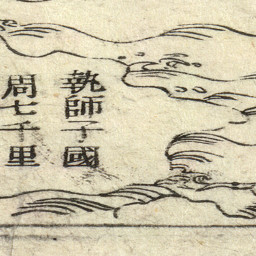 執師子國
周七千里